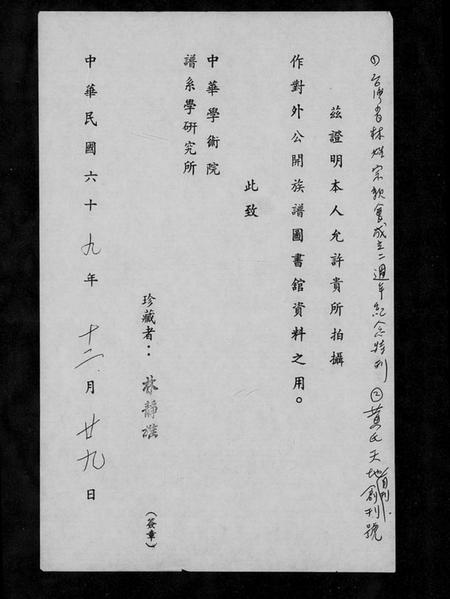 ①台灣省林姓宗親會成立二週年紀念特刊 ②黃氏天地月刊創刊號
茲證明本人允許貴所拍攝
作對外公開族譜圖書館資料之用。
此致
中華學術院
譜系學研究所
珍藏者：林靜雄 （簽章）
中華民國六十九年十二月廿九日